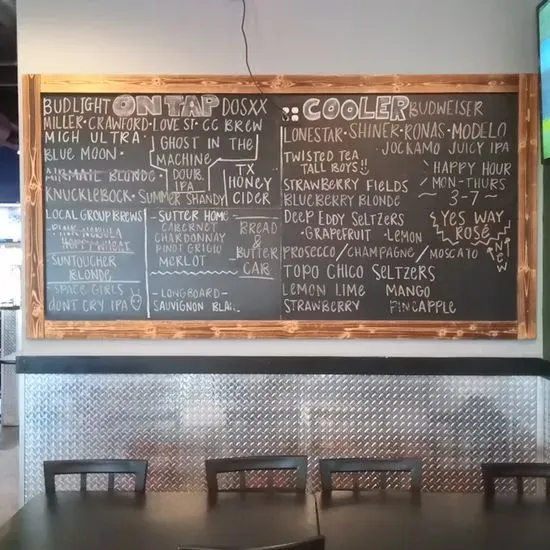 BUDLIGHT ON TAP DOSXX
MILLER · CRAWFORD · LOVE ST · CC BREW
MICH ULTRA
BLUE MOON ·
AIRMAIL BLONDE
KNUCKLEBOCK · SUMMER SHANDY
GHOST IN THE
MACHINE
DOUB.
IPA
TX
HONEY
CIDER
LOCAL GROUP BREWS
PINK NEBULA
HOPPY WHEAT
SUNTOUCHER
BLONDE
SPACE GIRLS
DONT CRY IPA
- SUTTER HOME -
CABERNET
CHARDONNAY
PINOT GRIGIO
MERLOT
BREAD
&
BUTTER
CAB
- LONGBOARD -
SAUVIGNON BLA
COOLER BUDWEISER
LONESTAR · SHINER · RONAS · MODELO
JOCKAMO JUICY IPA
TWISTED TEA
TALL BOYS!!
STRAWBERRY FIELDS
BLUEBERRY BLONDE
HAPPY HOUR
MON-THURS
- 3-7 -
DEEP EDDY SELTZERS
· GRAPEFRUIT · LEMON
YES WAY
ROSÉ
PROSECCO / CHAMPAGNE / MOSCATO
NEW
TOPO CHICO SELTZERS
LEMON LIME MANGO
STRAWBERRY PINEAPPLE